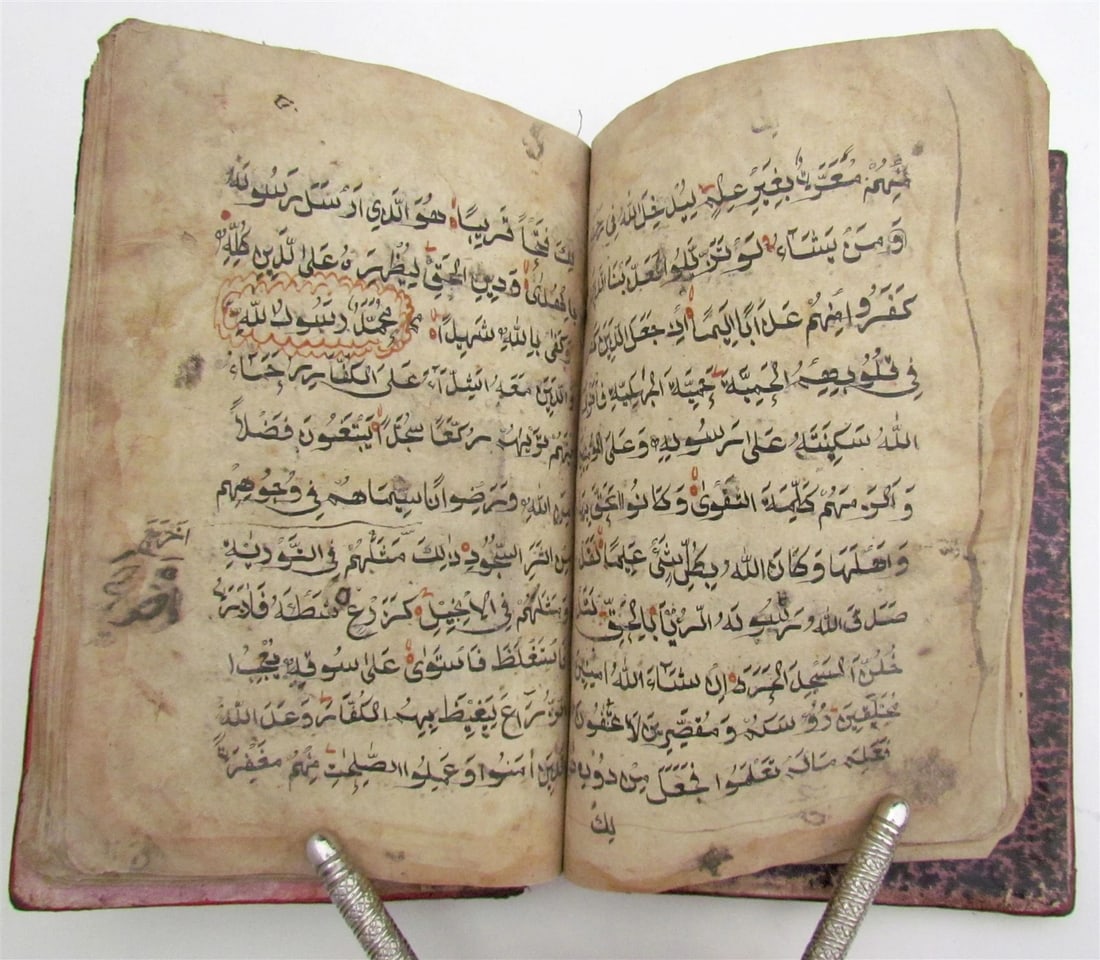 منهم معرة بغير علم ليدخل الله في
من يشاء لو تزيلوا لعذبنا
كفروا منهم عذابا اليما اذ جعل الذين
في قلوبهم الحمية حمية الجهلية
الله سكينته على رسوله وعلى
و كلمة التقوى وكانوا احق بها
واهلها وكان الله بكل شئ عليما لقد
صدق الله رسوله الريا بالحق لتد
خلن المسجد الحرم ان شاء الله امنين
محلقين رؤسكم ومقصرين لا تخافون
فعلم مالم تعلموا فجعل من دون ذ
لك
لك فتحا قريبا هو الذي ارسل رسوله
با لهدى ودين الحق ليظهره على الدين كله
وكفى بالله شهيدا محمد رسول الله
والذين معه اشداء على الكفار رحماء
بينهم تريهم ركعا سجدا يبتغون فضلا
من الله ورضوانا سيماهم في وجوههم
من اثر السجود ذلك مثلهم في التورية
ومثلهم في الانجيل كزرع شطئه فازره
فاستغلظ فاستوى على سوقه يعجب ا
لزراع ليغيظ بهم الكفار وعد الله
الذين امنوا وعملوا الصلحت منهم مغفرة